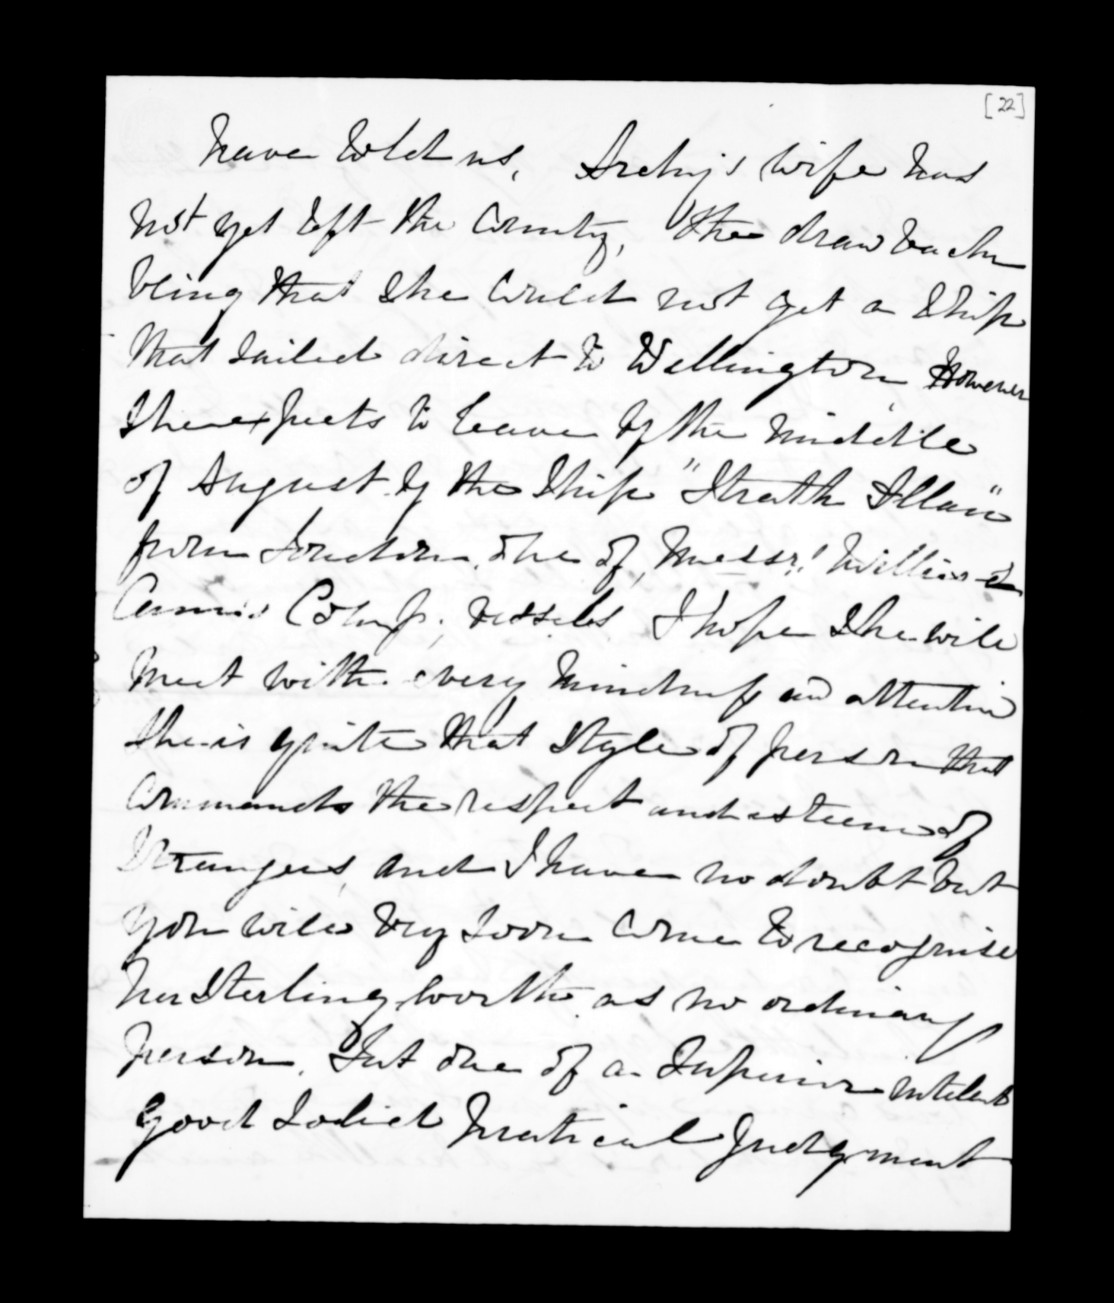 [22]
have told us, Archy's wife has
not yet left the Country, the draw back
being that she could not get a Ship
that sailed direct to Wellington However
She expects to leave by the middle
of August by the Ship "Strath Allan"
from London one of, Messrs. Willis &
Comp. vessels I hope She will
meet with every kindness and attention
She is quite that Style of person that
commands the respect and esteem of
Strangers, and I have no doubt but
you will very soon come to recognise
her Sterling worth as no ordinary
person, but one of a Superior intelect
Good Solid Practical Judgment